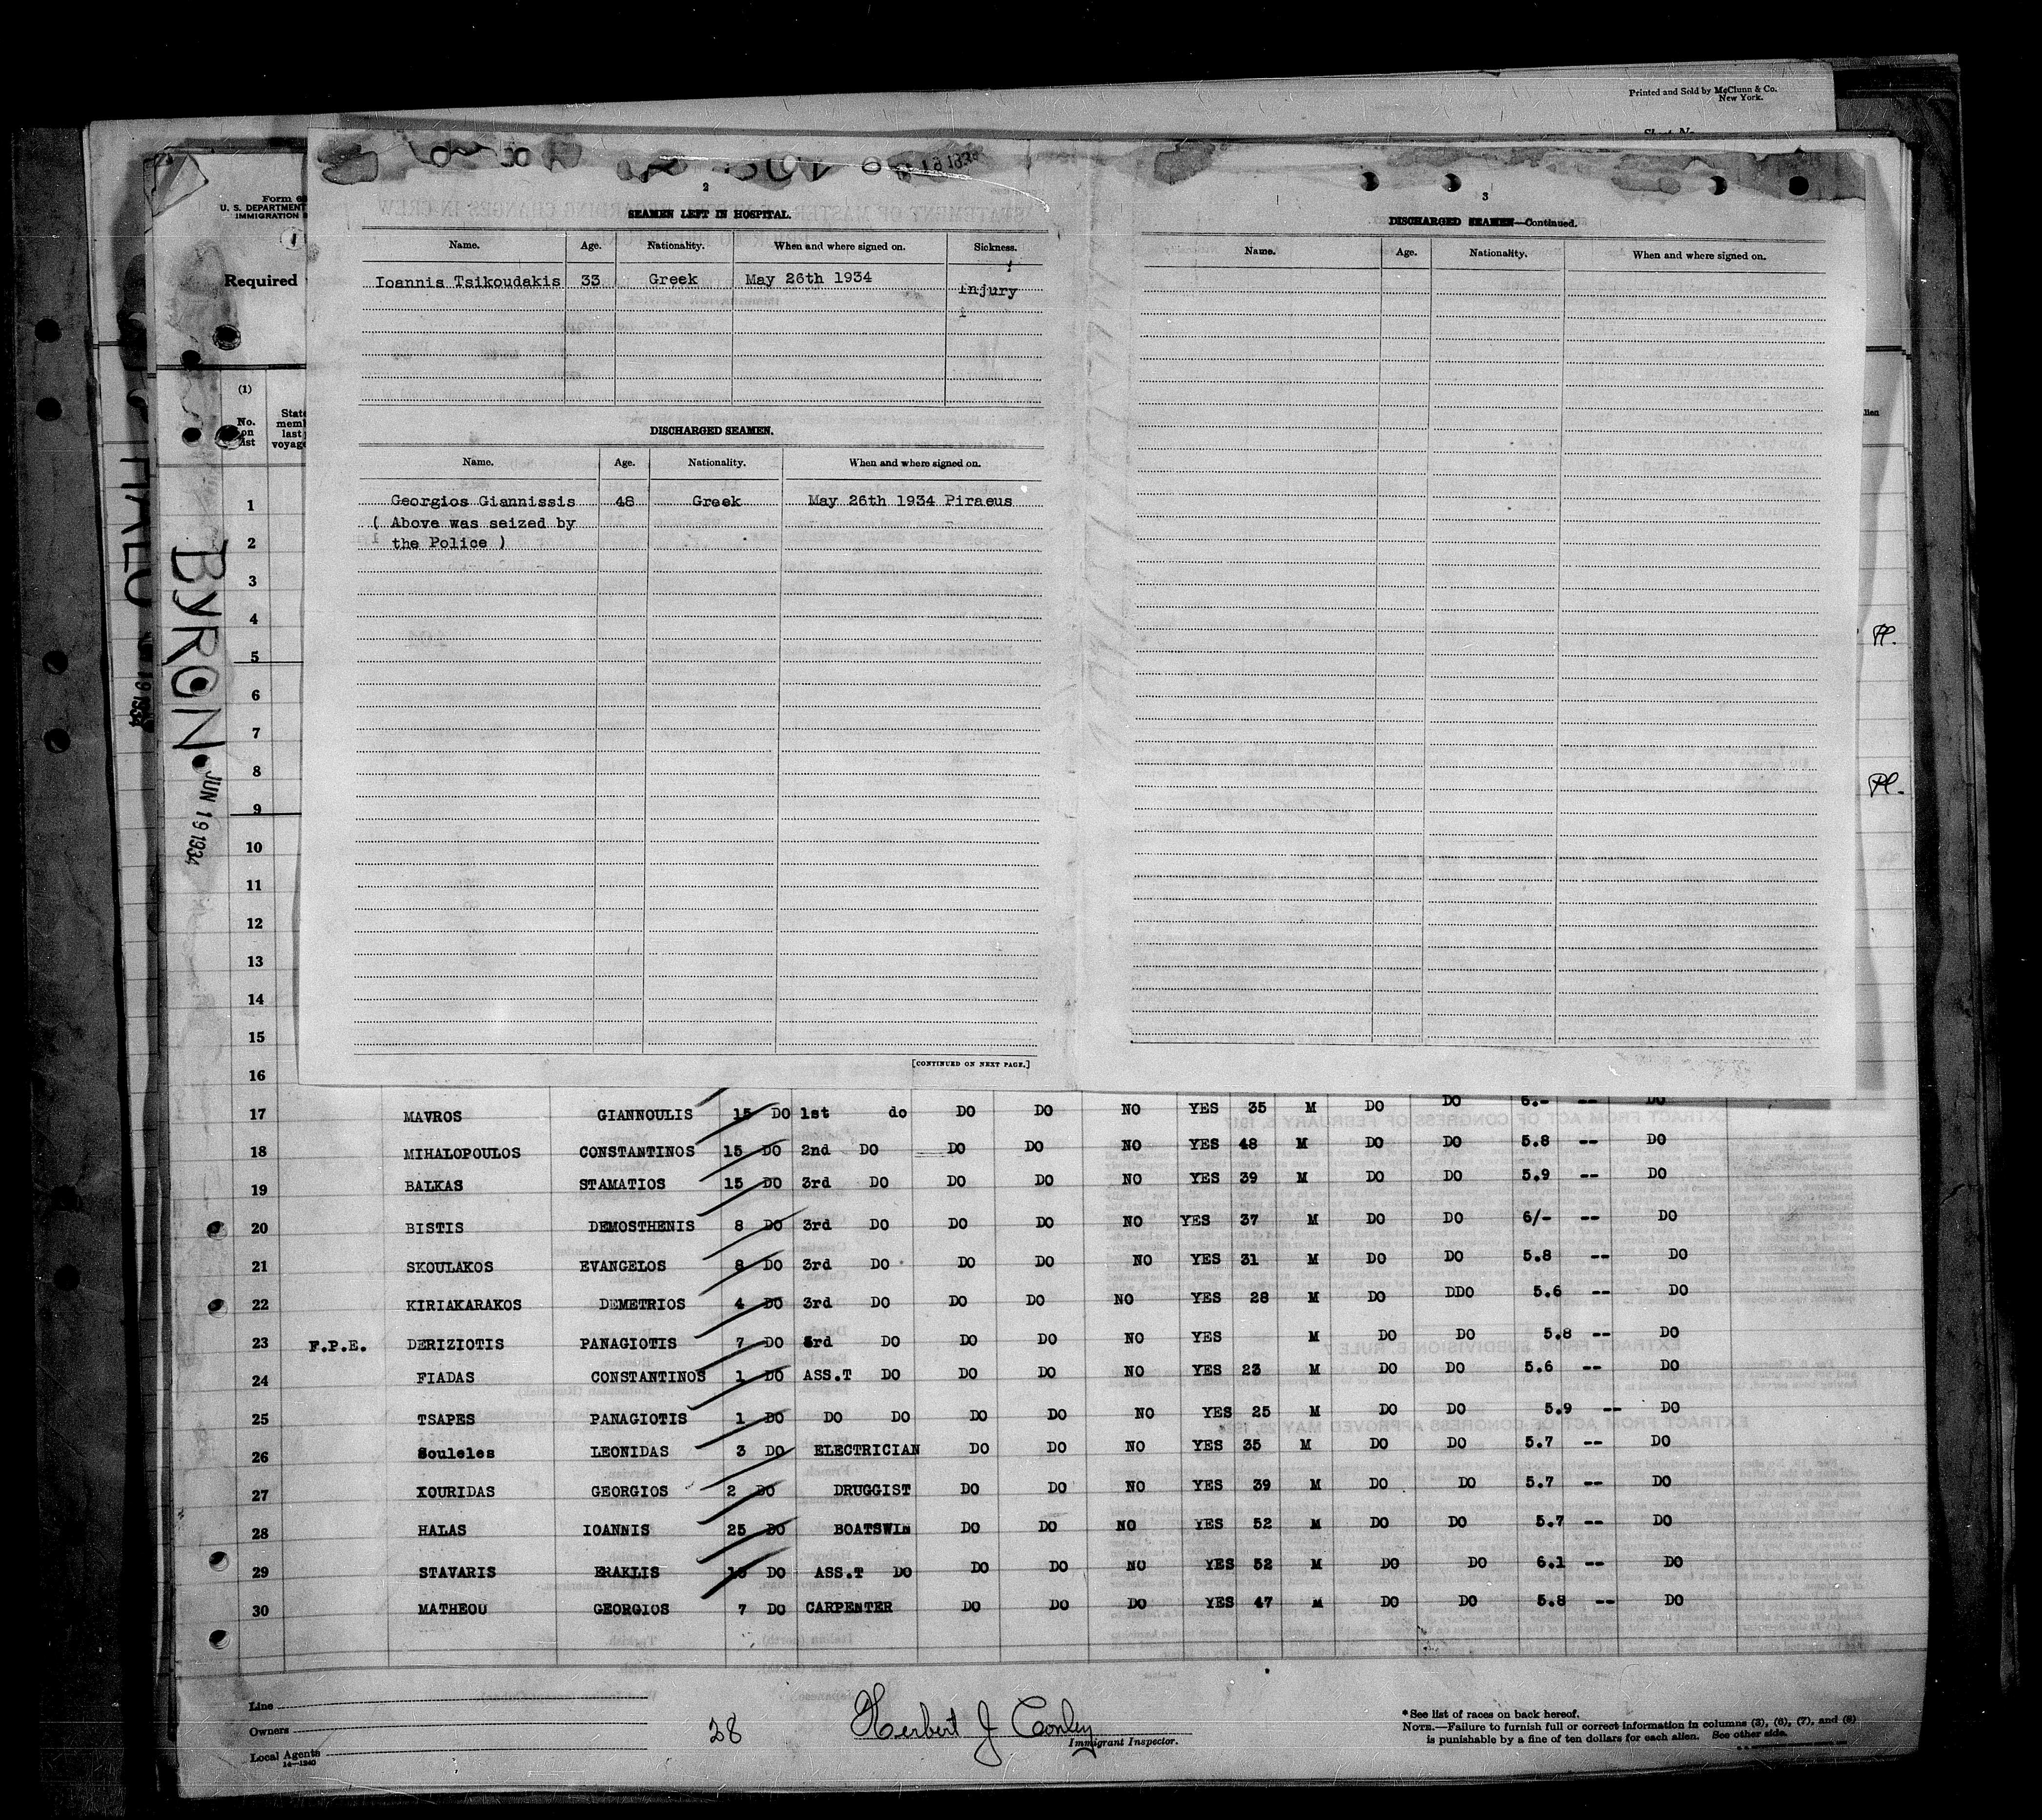 Printed and Sold by McClunn & Co.
New York.
19 1934
Form 6
U. S. DEPARTMENT
IMMIGRATION
1
Required
(1)
No. on list
State
memb
last
voyage
BYRON
JUN 19 1934
2
SEAMEN LEFT IN HOSPITAL.
Name. Age. Nationality. When and where signed on. Sickness.
Ioannis Tsikoudakis 33 Greek May 26th 1934 Injury
DISCHARGED SEAMEN.
Name. Age. Nationality. When and where signed on.
Georgios Giannissis 48 Greek May 26th 1934 Piraeus
( Above was seized by
the Police )
[CONTINUED ON NEXT PAGE.]
3
DISCHARGED SEAMEN—Continued.
Name. Age. Nationality. When and where signed on.
Pl.
Pl.
1
2
3
4
5
6
7
8
9
10
11
12
13
14
15
16
17 MAVROS GIANNOULIS 15 DO 1st do DO DO NO YES 35 M DO DO 6.- -- DO
18 MIHALOPOULOS CONSTANTINOS 15 DO 2nd DO DO DO NO YES 48 M DO DO 5.8 -- DO
19 BALKAS STAMATIOS 15 DO 3rd DO DO DO NO YES 39 M DO DO 5.9 -- DO
20 BISTIS DEMOSTHENIS 8 DO 3rd DO DO DO NO YES 37 M DO DO 6/- -- DO
21 SKOULAKOS EVANGELOS 8 DO 3rd DO DO DO NO YES 31 M DO DO 5.8 -- DO
22 KIRIAKARAKOS DEMETRIOS 4 DO 3rd DO DO DO NO YES 28 M DO DDO 5.6 -- DO
23 F.P.E. DERIZIOTIS PANAGIOTIS 7 DO 3rd DO DO DO NO YES M DO DO 5.8 -- DO
24 FIADAS CONSTANTINOS 1 DO ASS.T DO DO DO NO YES 23 M DO DO 5.6 -- DO
25 TSAPES PANAGIOTIS 1 DO DO DO DO DO NO YES 25 M DO DO 5.9 -- DO
26 Souleles LEONIDAS 3 DO ELECTRICIAN DO DO NO YES 35 M DO DO 5.7 -- DO
27 XOURIDAS GEORGIOS 2 DO DRUGGIST DO DO NO YES 39 M DO DO 5.7 -- DO
28 HALAS IOANNIS 25 DO BOATSWIN DO DO NO YES 52 M DO DO 5.7 -- DO
29 STAVARIS ERAKLIS DO ASS.T DO DO DO NO YES 52 M DO DO 6.1 -- DO
30 MATHEOU GEORGIOS 7 DO CARPENTER DO DO DO YES 47 M DO DO 5.8 -- DO
Line
Owners
Local Agents
14—1240
28
Herbert J Conley
Immigrant Inspector.
*See list of races on back hereof.
NOTE.—Failure to furnish full or correct information in columns (3), (6), (7), and (8)
is punishable by a fine of ten dollars for each alien. See other side.